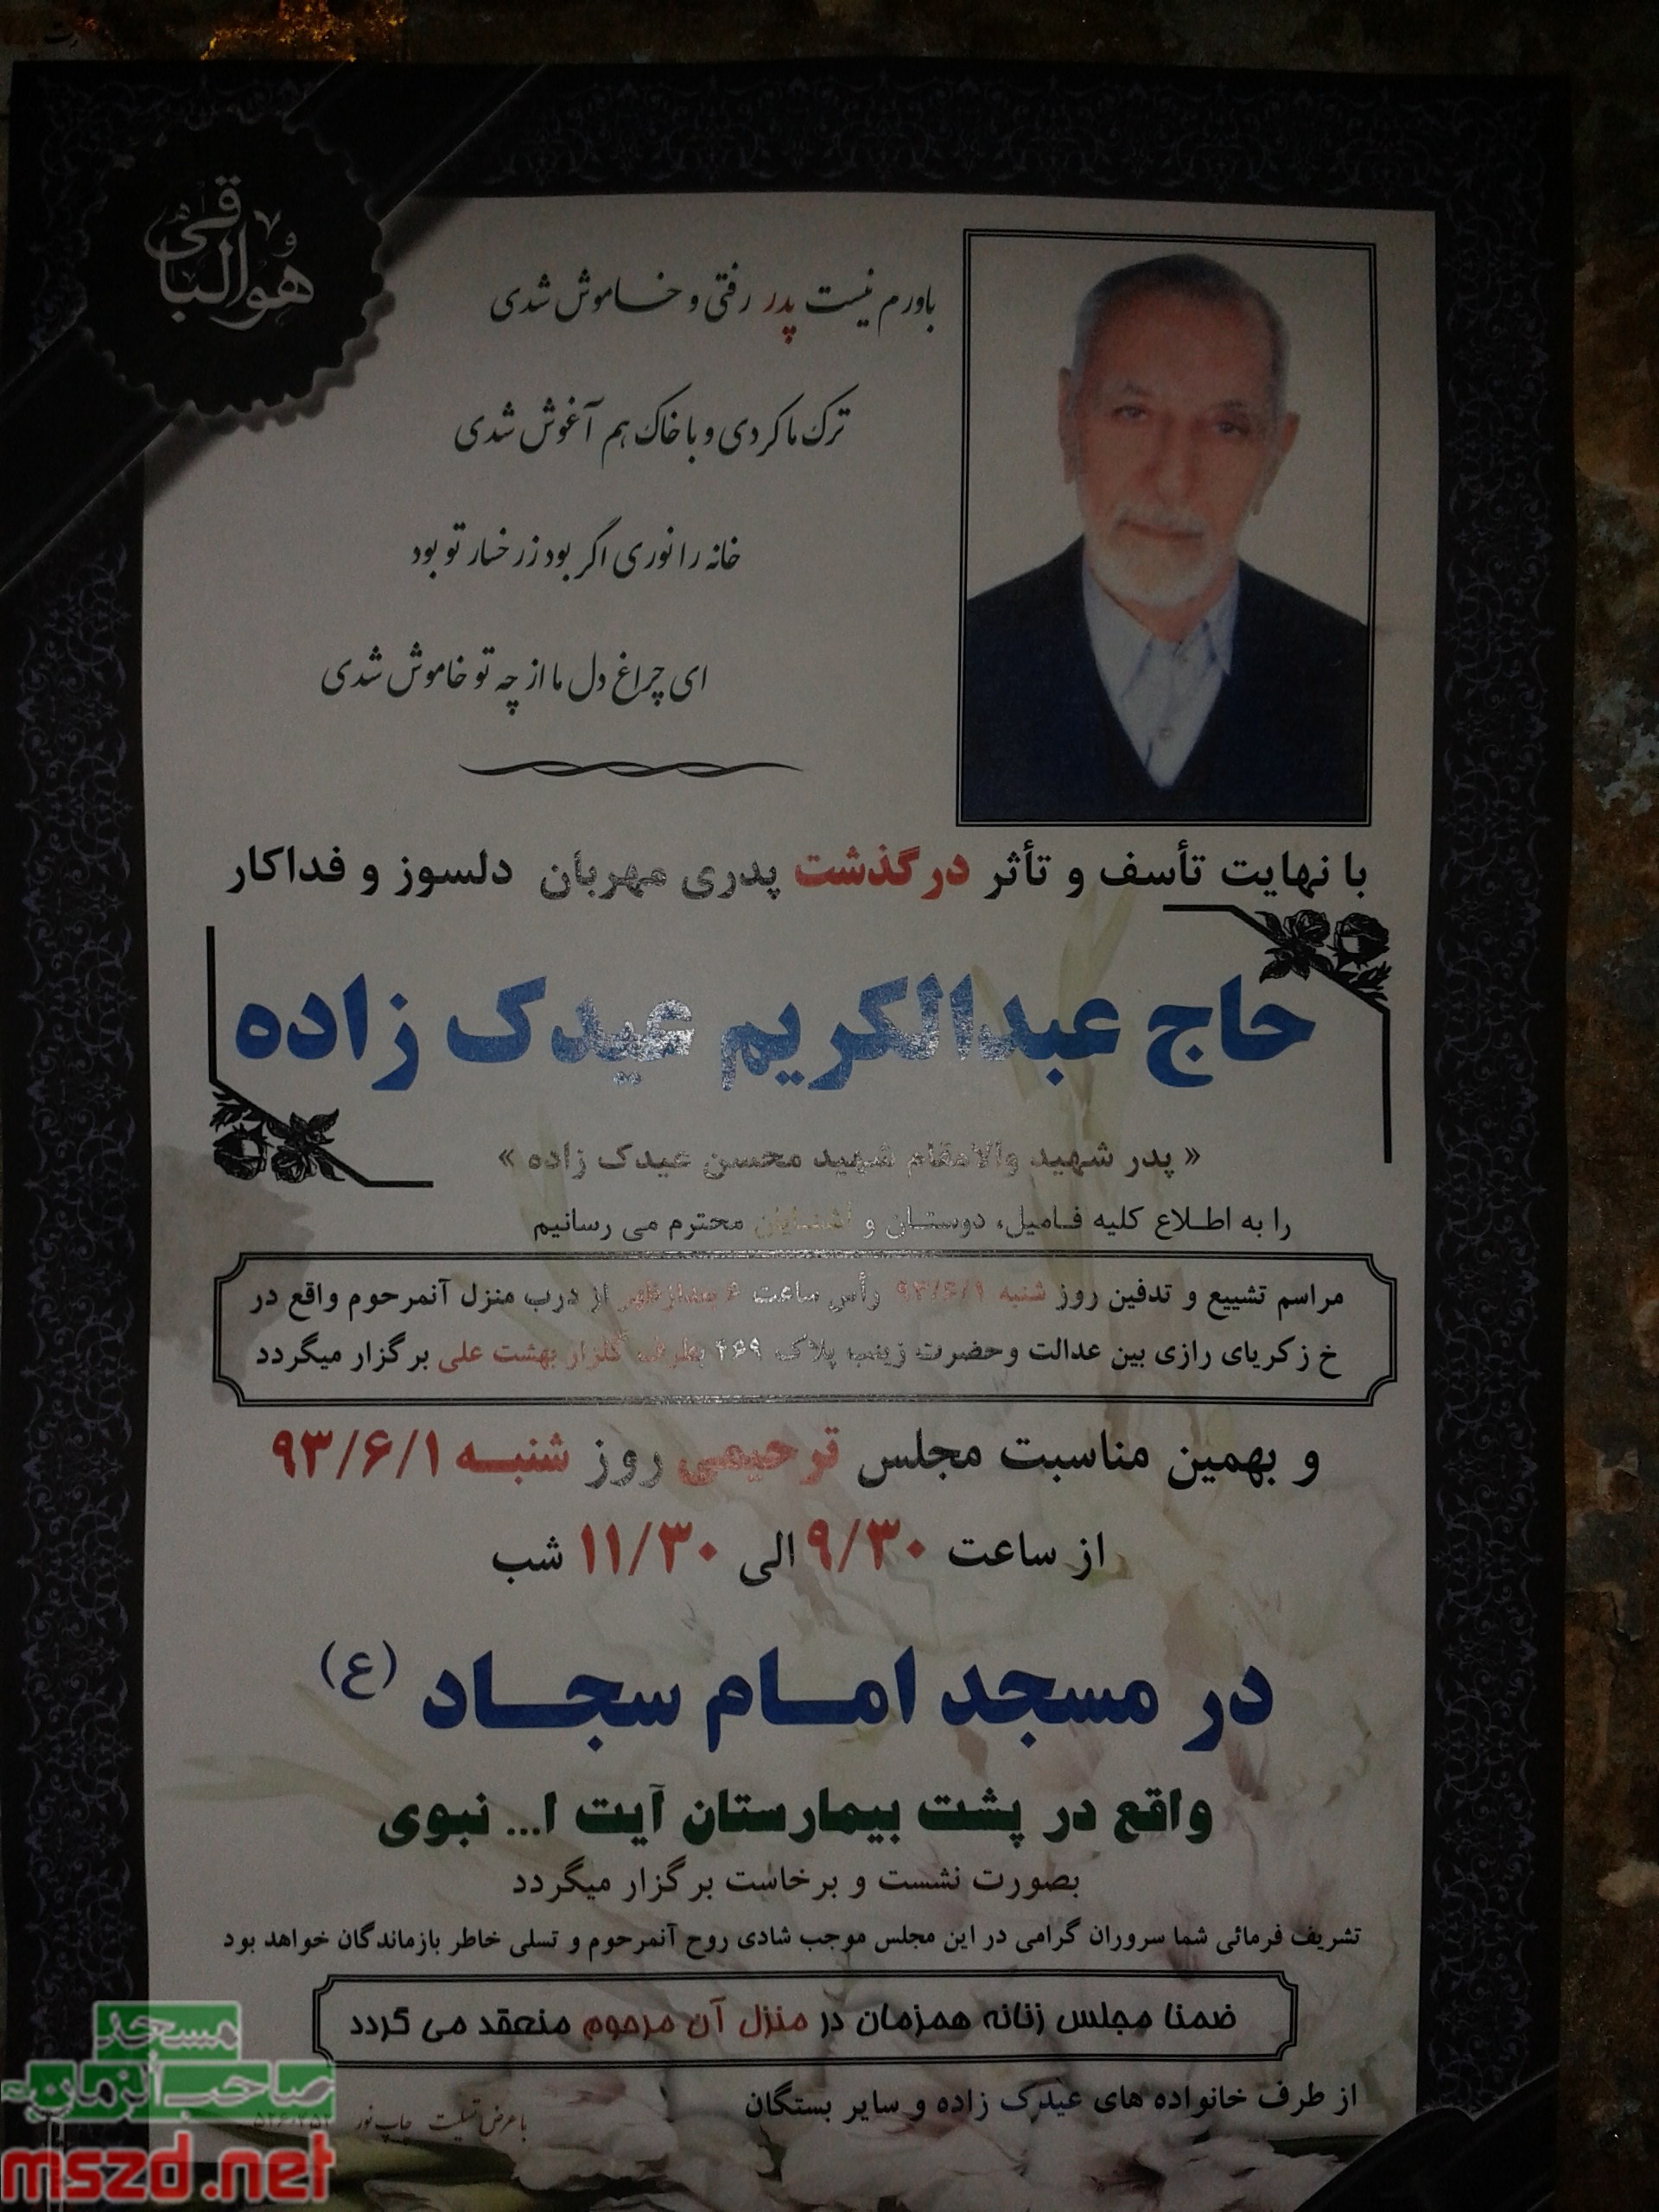 هوالباقی
باورم نیست پدر رفتی و خاموش شدی
ترک ما کردی و با خاک هم آغوش شدی
خانه را نوری اگر بود ز رخسار تو بود
ای چراغ دل ما از چه تو خاموش شدی
با نهایت تأسف و تأثر درگذشت پدری مهربان دلسوز و فداکار
حاج عبدالکریم عیدک زاده
« پدر شهید والامقام شهید محسن عیدک زاده »
را به اطلاع کلیه فامیل، دوستان و آشنایان محترم می رسانیم
مراسم تشییع و تدفین روز شنبه ۹۳/۶/۱ رأس ساعت ۶ بعدازظهر از درب منزل آنمرحوم واقع در
خ زکریای رازی بین عدالت و حضرت زینب پلاک ۴۶۹ بطرف گلزار بهشت علی برگزار میگردد
و بهمین مناسبت مجلس ترحیمی روز شنبه ۹۳/۶/۱
از ساعت ۹/۳۰ الی ۱۱/۳۰ شب
در مسجد امام سجاد (ع)
واقع در پشت بیمارستان آیت ا... نبوی
بصورت نشست و برخاست برگزار میگردد
تشریف فرمائی شما سروران گرامی در این مجلس موجب شادی روح آنمرحوم و تسلی خاطر بازماندگان خواهد بود
ضمنا مجلس زنانه همزمان در منزل آن مرحوم منعقد می گردد
از طرف خانواده های عیدک زاده و سایر بستگان
با عرض تسلیت چاپ نور
مسجد
صاحب الزمان
mszd.net